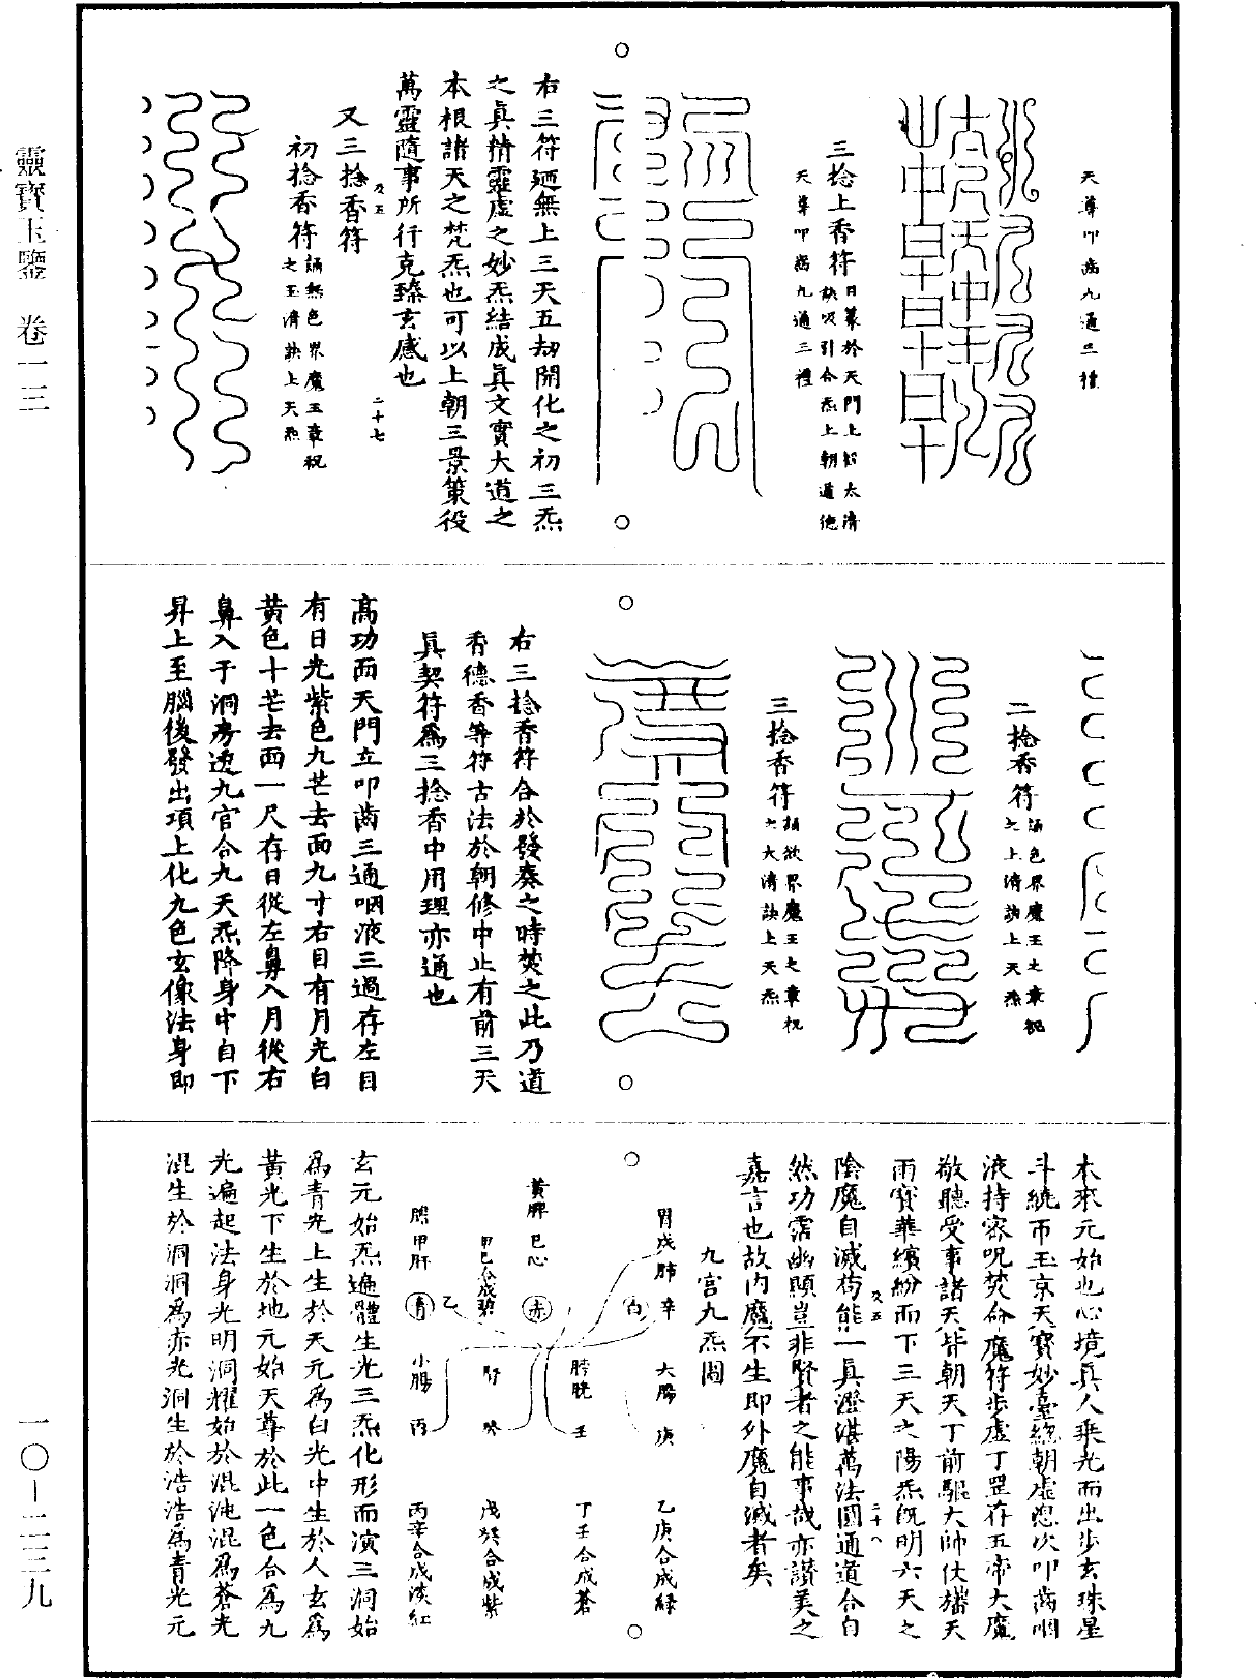 靈寶玉鑒 卷一三
天尊叩齒九通三禮
三捻上香符
天尊叩齒九通三禮
右三符廼無上三天五劫開化之初三炁
之眞精靈虛之妙炁結成眞文實大道之
本根諸天之梵炁也可以上朝三景策役
萬靈隨事所行克臻玄感也
二十七
又三捻香符
初捻香符
誦無色界魔王章祝
之玉清訣上天炁
二捻香符
誦色界魔王之章祝
之上清訣上天炁
三捻香符
誦欲界魔王之章祝
之太清訣上天炁
右三捻香符合於發奏之時焚之此乃道
香德香等符古法於朝修中止有前三天
眞契符爲三捻香中用理亦通也
高功面天門立叩齒三通咽液三過存左目
有日光紫色九芒去面九寸右目有月光白
黃色十芒去面一尺存日從左鼻入月從右
鼻入于洞房透九宮合九天炁降身中自下
昇上至腦後發出項上化九色玄像法身即
本來元始也心境眞人乘光而出步玄珠星
斗繞帀玉京天寶妙臺總朝虛怱次叩齒咽
液持密呪焚命魔符步虛丁罡存五帝大魔
敬聽受事諸天皆朝天丁前驅大帥仗旛天
雨寶華繽紛而下三天之陽炁旣明六天之
陰魔自滅苟能一眞澄湛萬法圓通道合自
二十八
然功霑幽顯豈非賢者之能事哉亦讚美之
嘉言也故內魔不生即外魔自滅者矣
九宮九炁圖
胃戌肺 白 辛 大腸 庚 乙庚合成綠
膀胱 壬 丁壬合成蒼
黃脾 巳心 赤
甲巳合成碧 腎 癸 戊癸合成紫
膽甲肝 靑 乙 小腸 丙 丙辛合成淡紅
玄元始炁遍體生光三炁化形而演三洞始
爲青光上生於天元爲白光中生於人玄爲
黃光下生於地元始天尊於此一色合爲九
光遍起法身光明洞耀始於混沌混爲蒼光
混生於洞洞爲赤光洞生於浩浩爲青光元
一〇-二三九